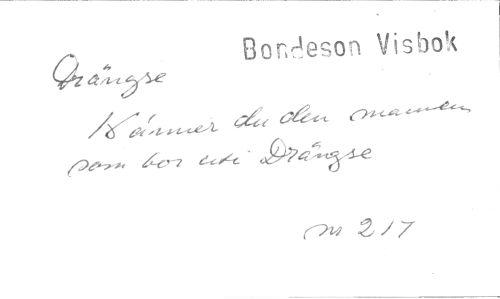 Bondeson Visbok
Drängse
Känner du den mannen
som bor uti Drängse
nr 217